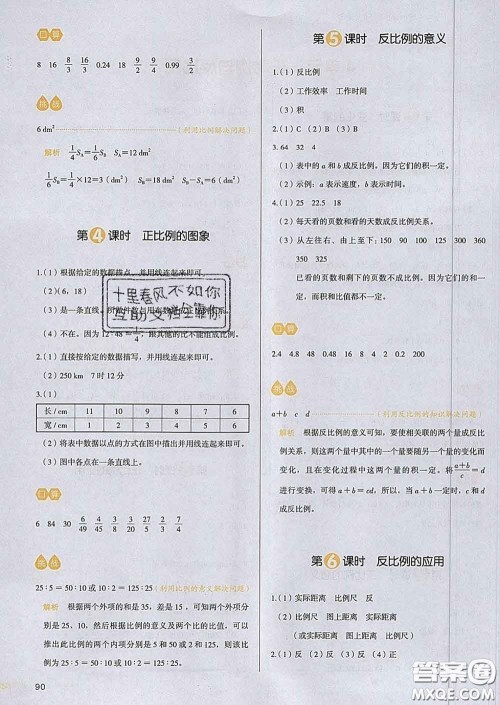 口算
8 16 8/3 6/3 0.24 18 9/2 9/4 0.99 3/2
挑战
6 dm² (利用比例解决问题)
解析 1/4 S_A=1/6 S_B
1/4 S_A=1/4×12=3(dm²) S_B=18 dm² S_B-S_A=6 dm²
第4课时 正比例的图象
1.(1)根据给定的数据描点,并用线连起来即可。
(2)(6,18)
(3)是一条直线。
(4)不能。因为12÷48=1/4,跟其他的比不能组成比例。
十里春风不如你
互助文档全靠你
2.(1)直接按给定的数据描写,并用线连起来即可。
(2)250 km 7时12分
3.(1)
长/cm 11 10 9 8 7 6
宽/cm 1 2 3 4 5 6
(2)将表中数据以点的方式在图中描出并用线连起来即可。
(3)图中各点在一条直线上。
口算
6 84 30
挑战
25∶5=50∶10或10∶2=125∶25(利用比例的意义解决问题)
解析 根据两个外项的和是35,差是15,可知两个外项分别
是25、10,然后根据比例的意义及两个比的比值,可以
推出此比例的两个内项分别是5和50或2和125,则该比
例为25∶5=50∶10或10∶2=125∶25。
90
第5课时 反比例的意义
1.(1)反比例
(2)工作效率 工作时间
(3)积
2.(1)C (2)B (3)B
3.64 32 4
(1)表中的a和b成反比例,因为它们的积一定。
(2)示例:a表示速度,b表示时间。
4.(1)25 22.5 18
(2)每天看的页数和看的天数成反比例关系。
(3)从左往右、由上至下:150 150 360 90 450
0
已看的页数和剩下的页数不成比例,因为它们的
面积和比值都不一定。
口算
2.4 8.8 0.48 160 5.2 0.4 4 120
挑战
a+b c d (利用反比例的知识解决问题)
解析 根据反比例的意义可知,要使相关联的两个量成反比例
关系,则这两个量中的其中一个量要随着另一个量的变化而
变化,且在变化过程中这两个量的积一定。将(a+b)/c=d
进行变换,可得a+b=cd。所以,当a+b一定时,c与d
成反比例关系。
第6课时 反比例的应用
1.(1)实际距离 比例尺 反
(2)比例尺 图上距离 正
(3)实际距离 图上距离 正
2.(1)反 (2)反 (3)反 (4)正
答案圈
MXQE.COM